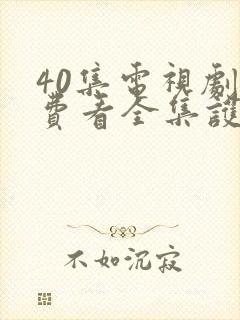 40集電視劇
費看全集護
不如沉寂